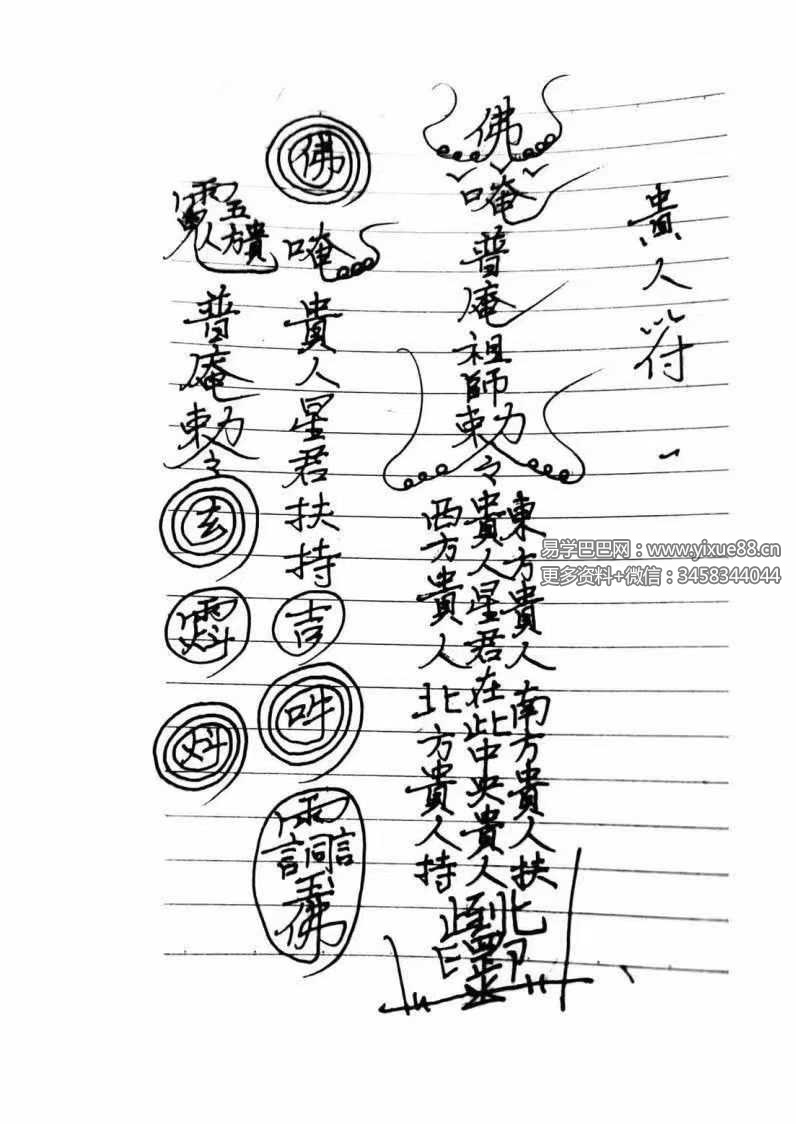 貴人符
佛
唵普庵祖師勅令
東方貴人南方貴人扶
貴人星君在此中央貴人
西方貴人北方貴人持
佛
唵
貴人星君扶持
吉
吽
佛
普庵勅令
玄
易学巴巴网：www.yixue88.cn
更多资料+微信：3458344044